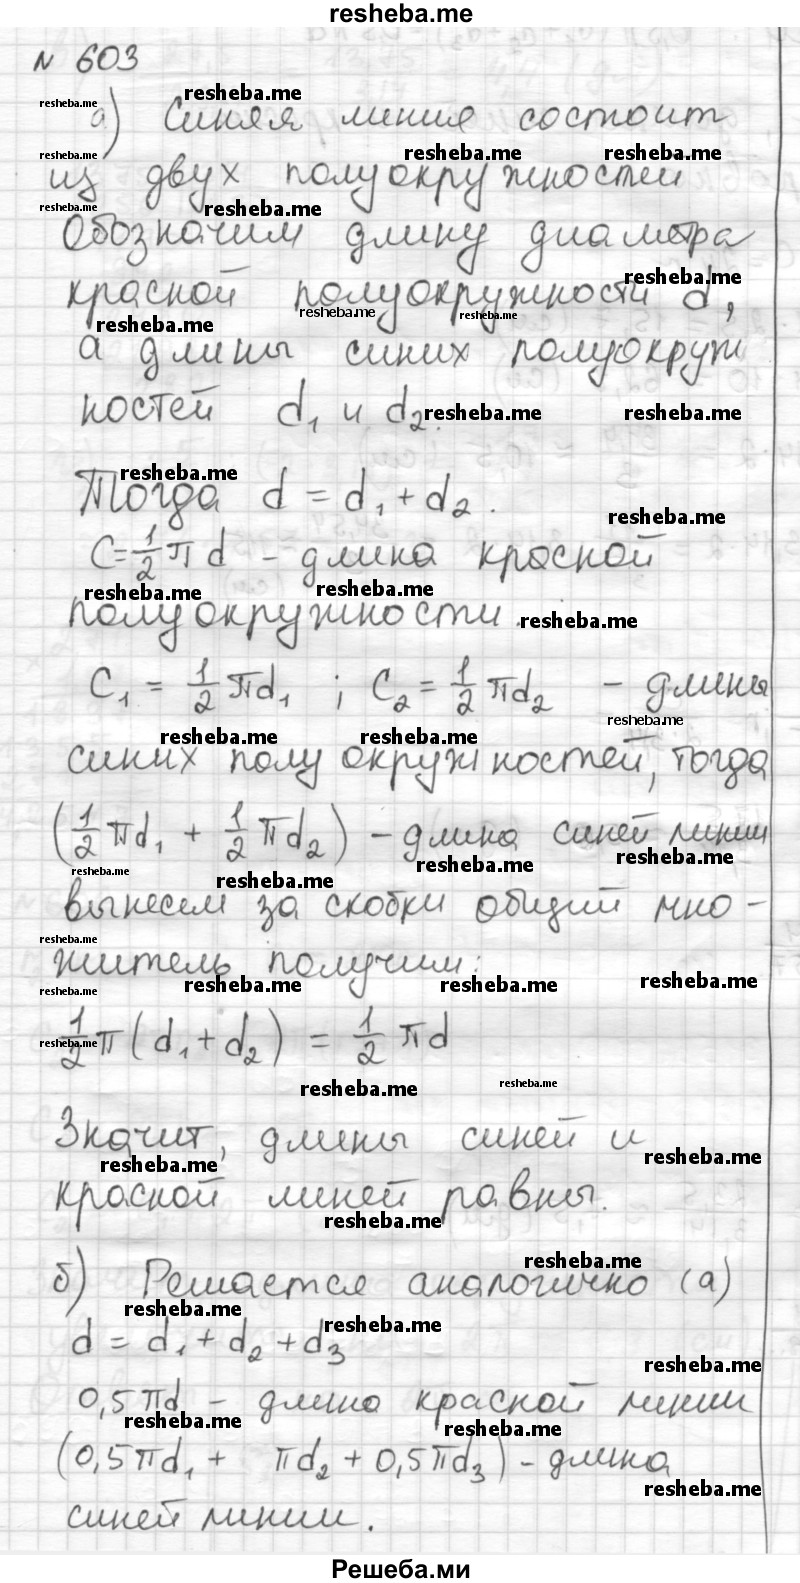 resheba.me
№ 603
а) Синяя линия состоит
из двух полуокружностей
Обозначим длину диаметра
красной полуокружности d,
а длины синих полуокруж
ностей d₁ и d₂.
Тогда d = d₁ + d₂.
C = 1/2 πd – длина красной
полуокружности.
C₁ = 1/2 πd₁ ; C₂ = 1/2 πd₂ – длины
синих полуокружностей, тогда
(1/2 πd₁ + 1/2 πd₂) – длина синей линии
вынесем за скобки общий мно-
житель получим:
1/2 π(d₁ + d₂) = 1/2 πd
Значит, длины синей и
красной линей равны.
б) Решается аналогично (а)
d = d₁ + d₂ + d₃
0,5πd – длина красной линии
(0,5πd₁ + πd₂ + 0,5πd₃) – длина
синей линии.
Решеба.ми